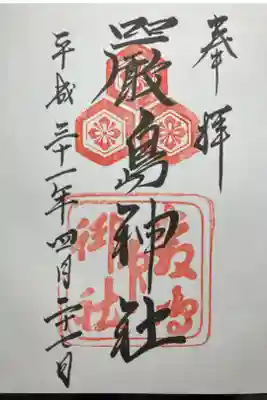 奉拝
嚴島神社
平成三十一年四月二十七日
嚴島
神社
御社